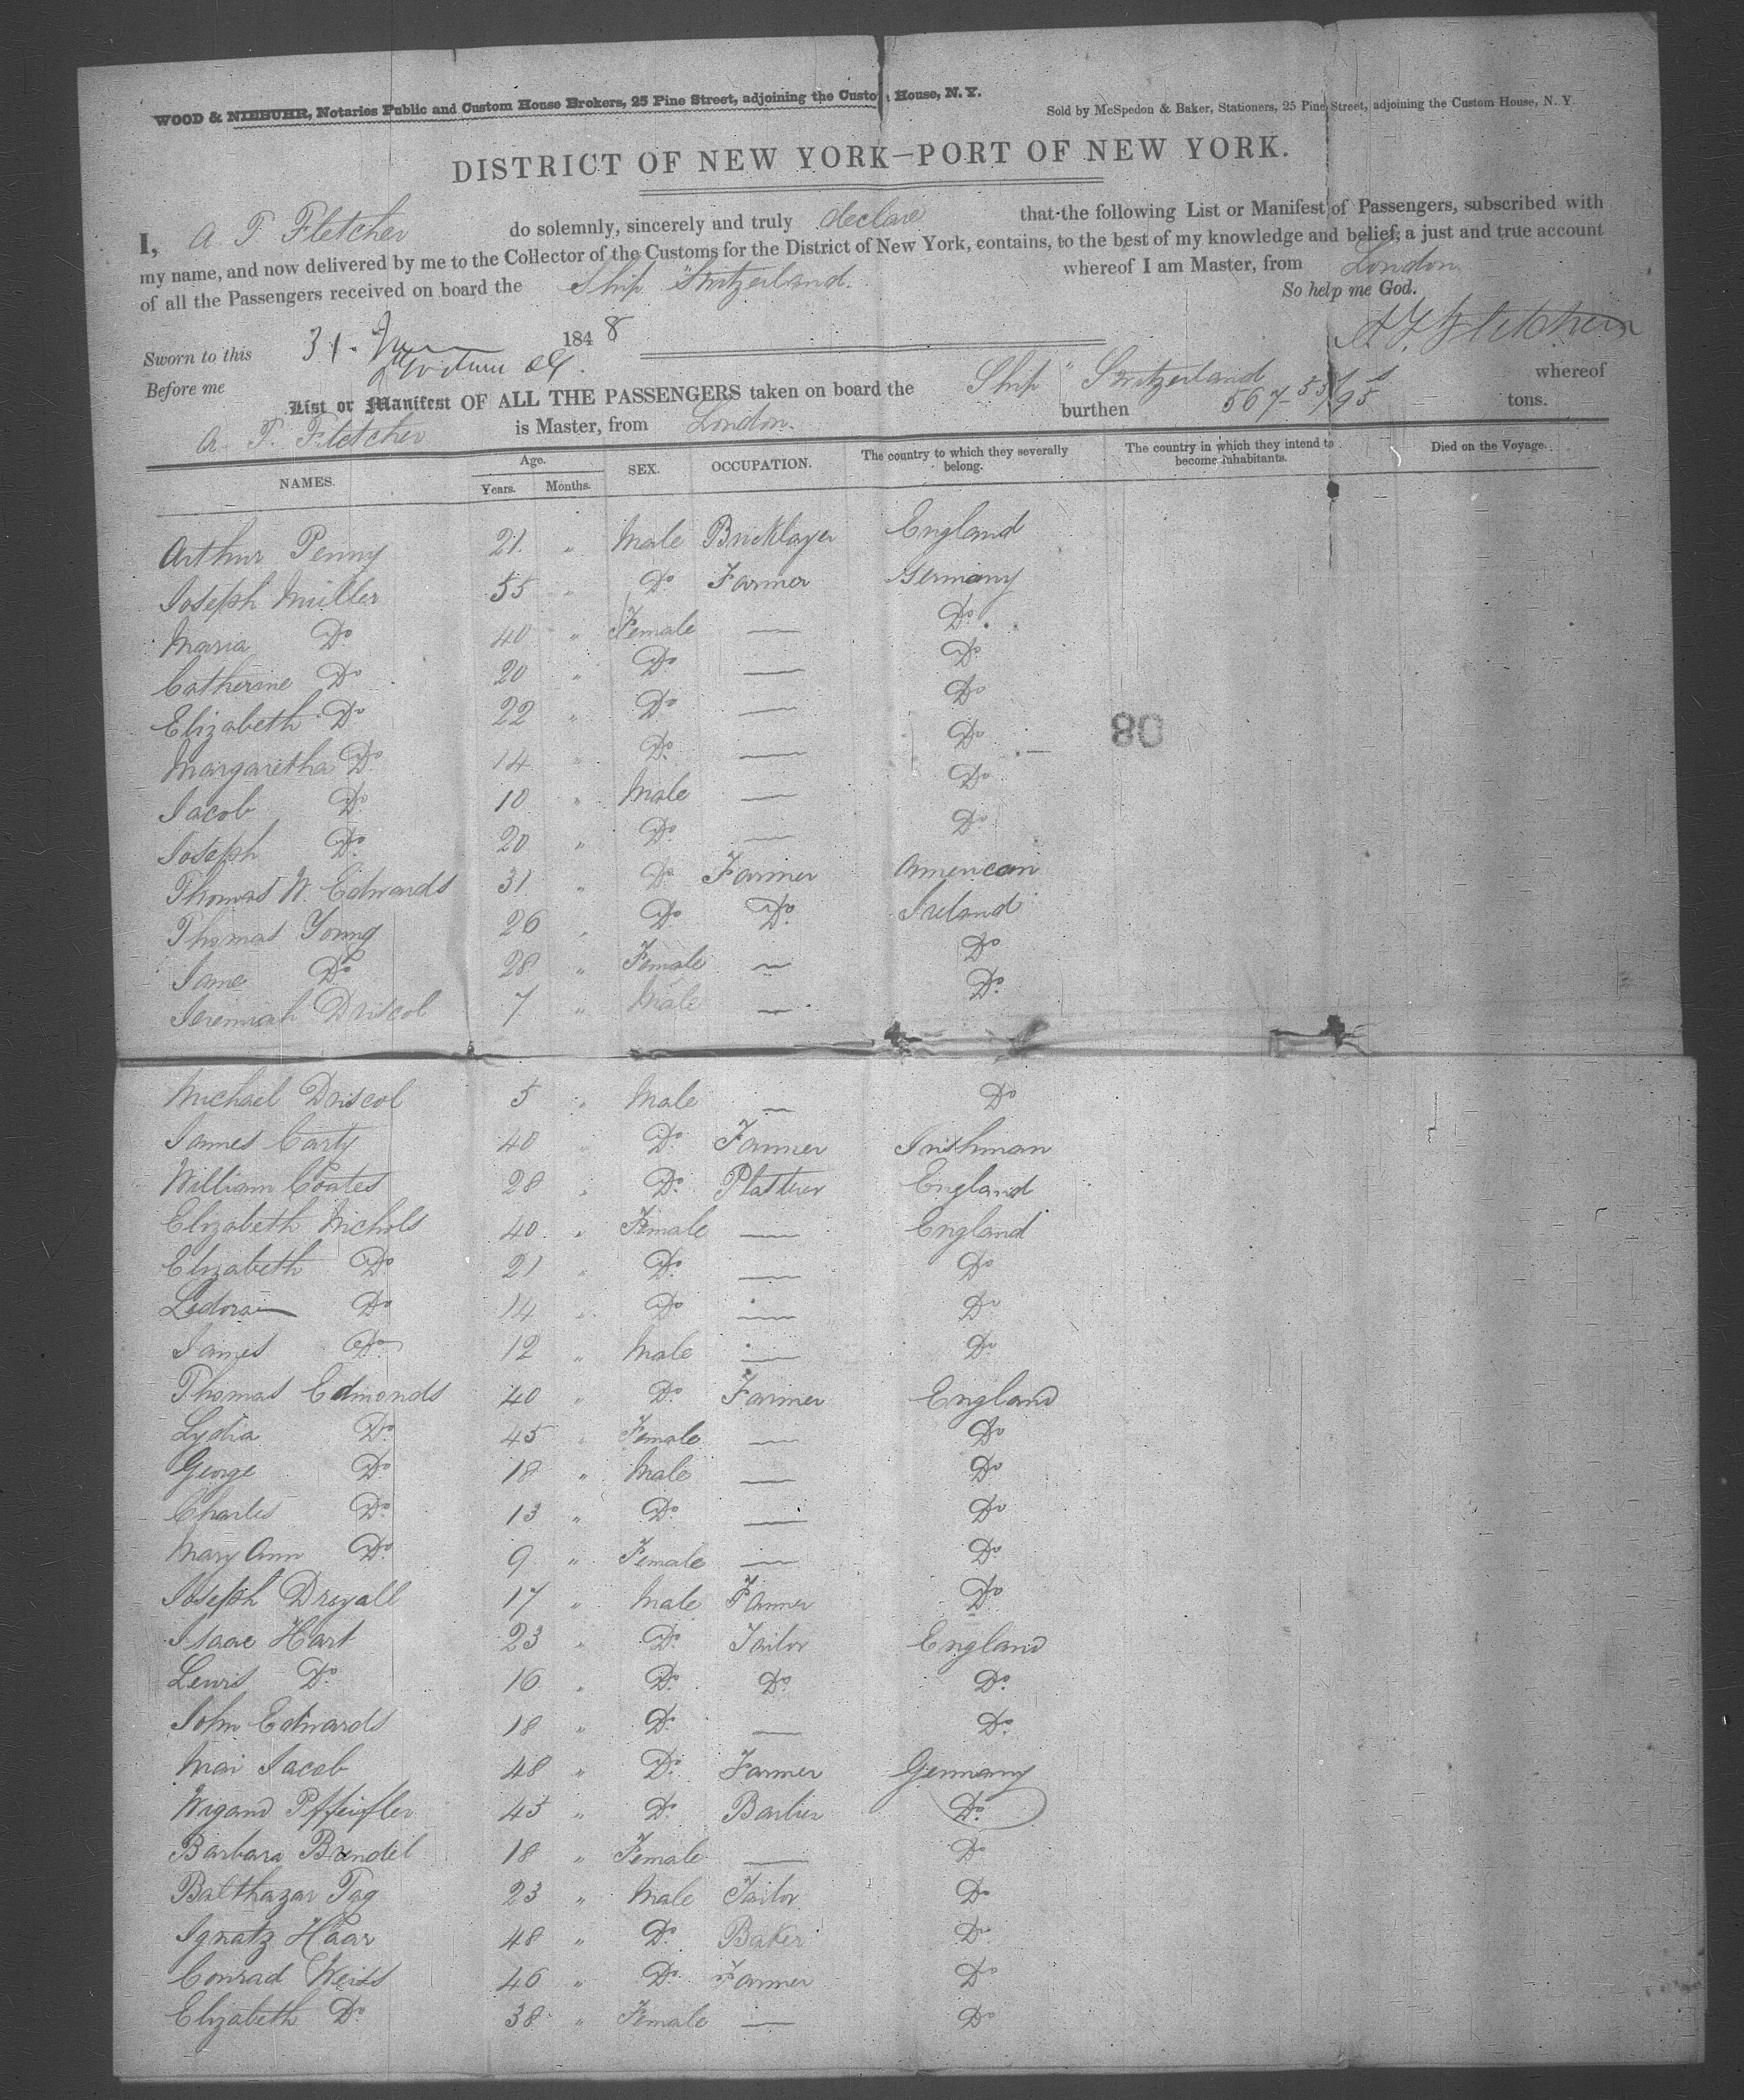 WOOD & NIEBUHR, Notaries Public and Custom House Brokers, 25 Pine Street, adjoining the Custom House, N. Y.
Sold by McSpedon & Baker, Stationers, 25 Pine Street, adjoining the Custom House, N. Y.
DISTRICT OF NEW YORK—PORT OF NEW YORK.
I, A. T. Fletcher do solemnly, sincerely and truly declare that the following List or Manifest of Passengers, subscribed with
my name, and now delivered by me to the Collector of the Customs for the District of New York, contains, to the best of my knowledge and belief, a just and true account
of all the Passengers received on board the Ship "Switzerland. whereof I am Master, from London
So help me God.
Sworn to this 31. 1848 A. T. Fletcher
Before me
List or Manifest OF ALL THE PASSENGERS taken on board the Ship "Switzerland whereof
A. T. Fletcher is Master, from London. burthen 567 53/95 tons.
NAMES. Age. Years. Months. SEX. OCCUPATION. The country to which they severally belong. The country in which they intend to become inhabitants. Died on the Voyage.
Arthur Penny 21 " Male Bricklayer England
Joseph Müller 55 " Do Farmer Germany
Maria Do 40 " Female — Do
Catherine Do 20 " Do — Do
Elizabeth Do 22 " Do — Do
Margaretha Do 14 " Do — Do
80
Jacob Do 10 " Male — Do
Joseph Do 20 " Do — Do
Thomas W. Edwards 31 " Do Farmer American
Thomas Young 26 " Do Do Ireland
Jane Do 28 " Female — Do
Jeremiah Driscol 7 " Male — Do
Michael Driscol 5 " Male — Do
James Carty 40 " Do Farmer Irishman
William Coates 28 " Do England
Elizabeth Nichols 40 " Female — England
Elizabeth Do 21 " Do — Do
Do 14 " Do — Do
James Do 12 " Male — Do
Thomas Edmonds 40 " Do Farmer England
Lydia Do 45 " Female — Do
George Do 18 " Male — Do
Charles Do 13 " Do — Do
Mary Ann Do 9 " Female — Do
Joseph 17 " Male Farmer Do
Isaac Hart 23 " Do Tailor England
Lewis Do 16 " Do Do Do
John Edwards 18 " Do — Do
Mai Jacob 48 " Do Farmer Germany
Wigand Pffeiffer 45 " Do Barbier Do
Barbara 18 " Female — Do
Balthazar Tag 23 " Male Tailor Do
Ignatz Haar 48 " Do Baker Do
Conrad Weiss 46 " Do Farmer Do
Elizabeth Do 38 " Female — Do